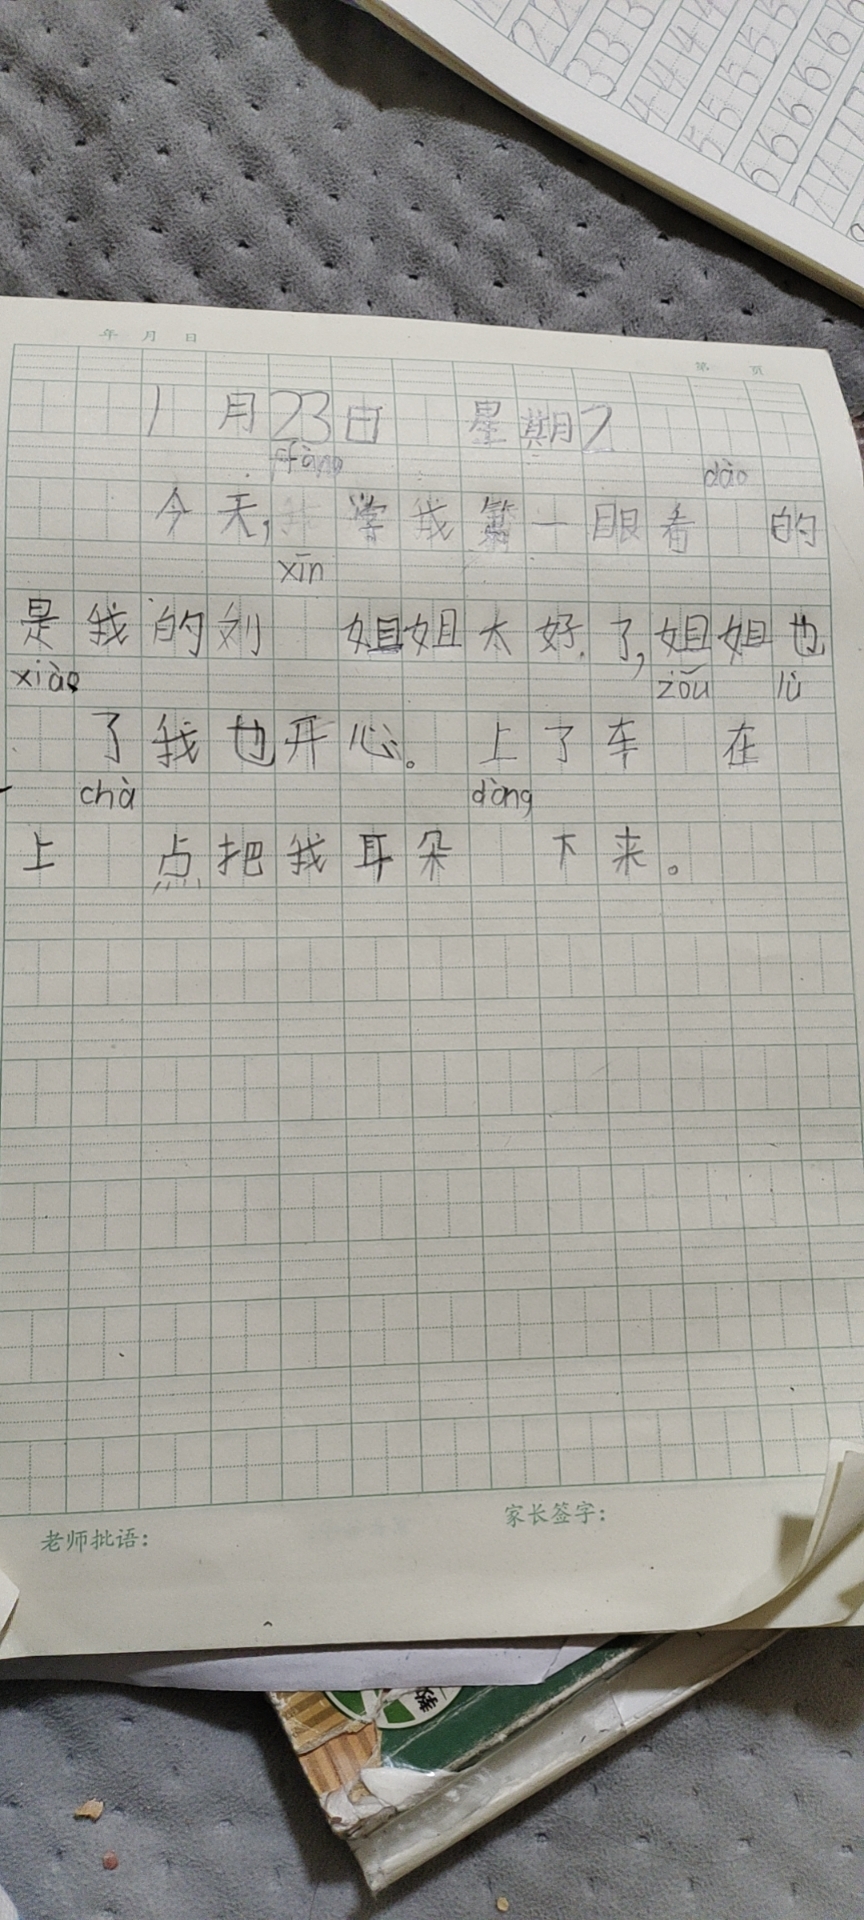 年 月 日
第 页
1月23日 星期2
fàng dào
今天,学我第一眼看 的
xīn
是我的刘 姐姐太好了,姐姐也
xiào zǒu lù
了我也开心。上了车 在
chà dòng
上 点把我耳朵 下来。
老师批语:
家长签字: